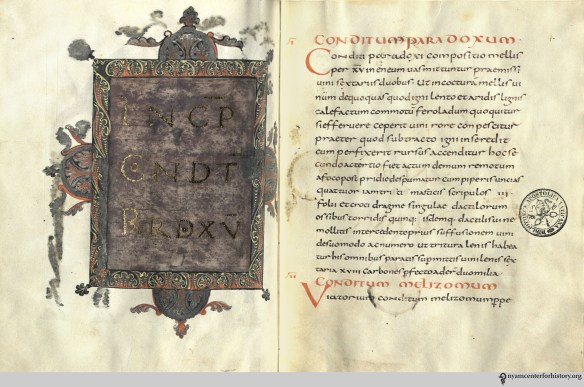 INCP
CONDT
PARDXV
I
CONDITUM PARADOXUM
Conditi paradoxi compositio mellis
per xv in eneum vas mittuntur praemissi
vini sextariis duobus ut in coctura mellis vi
num dequoquas quod igni lento et aridis lignis
calefactum commotu ferola dum quoquitur
si effervere ceperit vini rore conpescitur
praeter quod subtracto igni in se redit
cum perfrixerit rursus accenditur hoc se
cundo ac tertio fiet ac tum demum remotum
a foco post pridie despumatur cum piperis uncias
quattuor iam triti masticis scripulos iii
folii et croci dragme singulae dactilorum
ossibus torridis quinq; isdemq; dactilis vi ne
mollitis intercedente prius suffusione vini
de suo modo ac numero ut tritura lenis habea
tur his omnibus paratis supmittis vini lenis sex
taria xviii carbones pfecto aderunt duo milia
II
CONDITUM MELIZOMUM
Viatorium conditum melizomum ppe
BIBLIOTECA APOSTOLICA VATICANA
nyamcenterforhistory.org